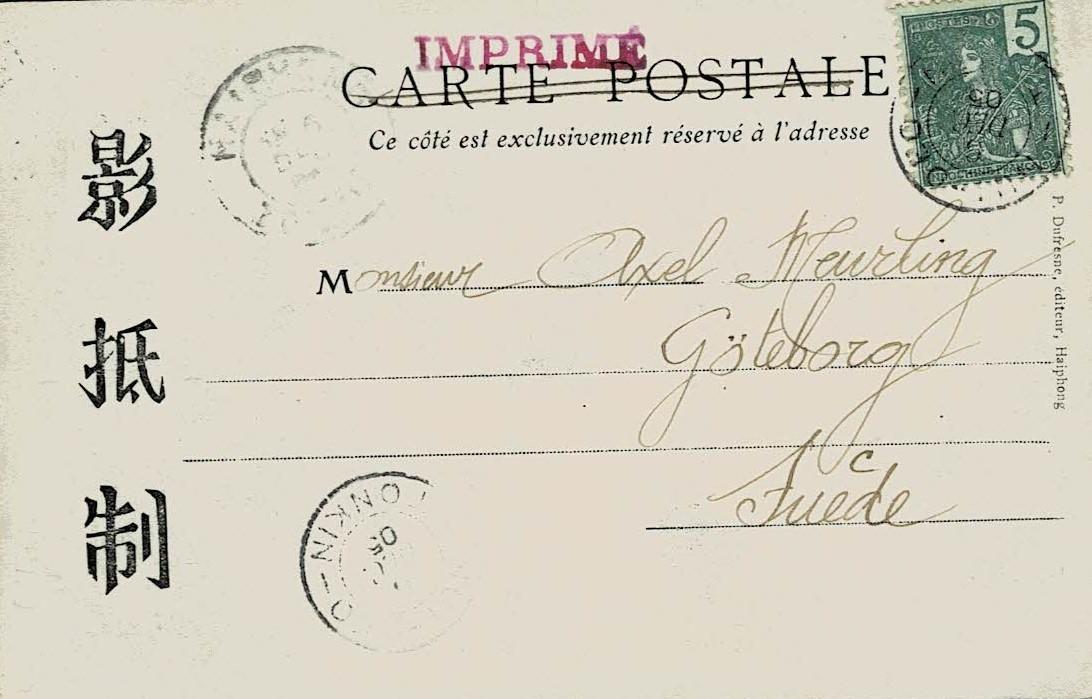 IMPRIMÉ
CARTE POSTALE
Ce côté est exclusivement réservé à l'adresse
5
POSTES
INDOCHINE FRANÇAISE
05
影抵制
Monsieur Axel Meurling
Göteborg
Suède
P. Dufresne, éditeur, Haiphong
TONKIN
05